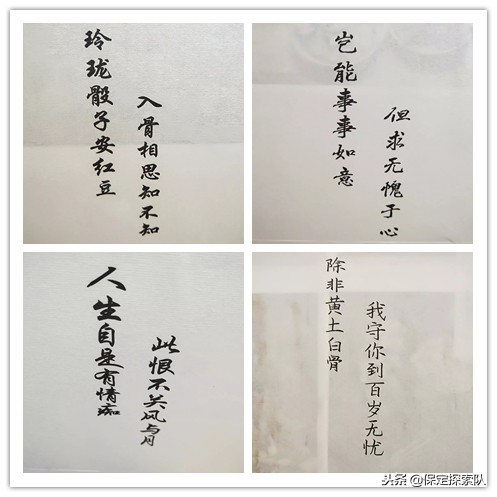 玲珑骰子安红豆
入骨相思知不知
岂能事事如意
但求无愧于心
人生自是有情痴
此恨不关风与月
除非黄土白骨
我守你到百岁无忧
头条 @保定探索队